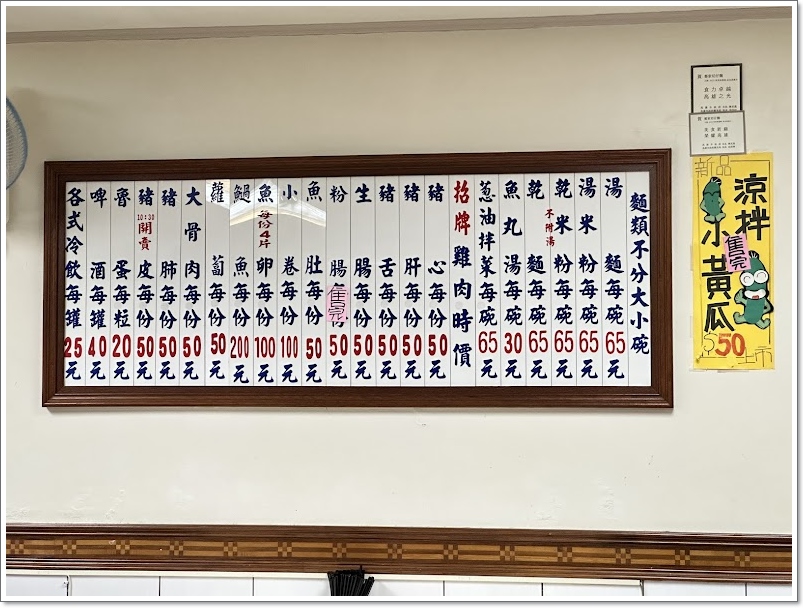 麵類不分大小碗
湯麵每碗65元
湯米粉每碗65元
乾米粉每碗65元
不附湯
乾麵每碗65元
魚丸湯每碗30元
蔥油拌菜每碗65元
招牌雞肉時價
豬心每份50元
豬肝每份50元
豬舌每份50元
生腸每份50元
粉腸每份50元
售完
魚肚每份50元
小卷每份100元
魚卵每份100元
每份4片
鯝魚200元
蘿蔔每份50元
大骨肉每份50元
豬肺每份50元
豬皮每份50元
10:30開賣
魯蛋每粒20元
啤酒每罐40元
各式冷飲每罐25元
食力卓越
高雄之光
新品
涼拌
小黃瓜
售完
$50
上市